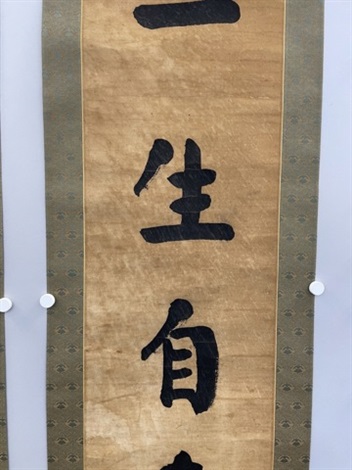 一生自